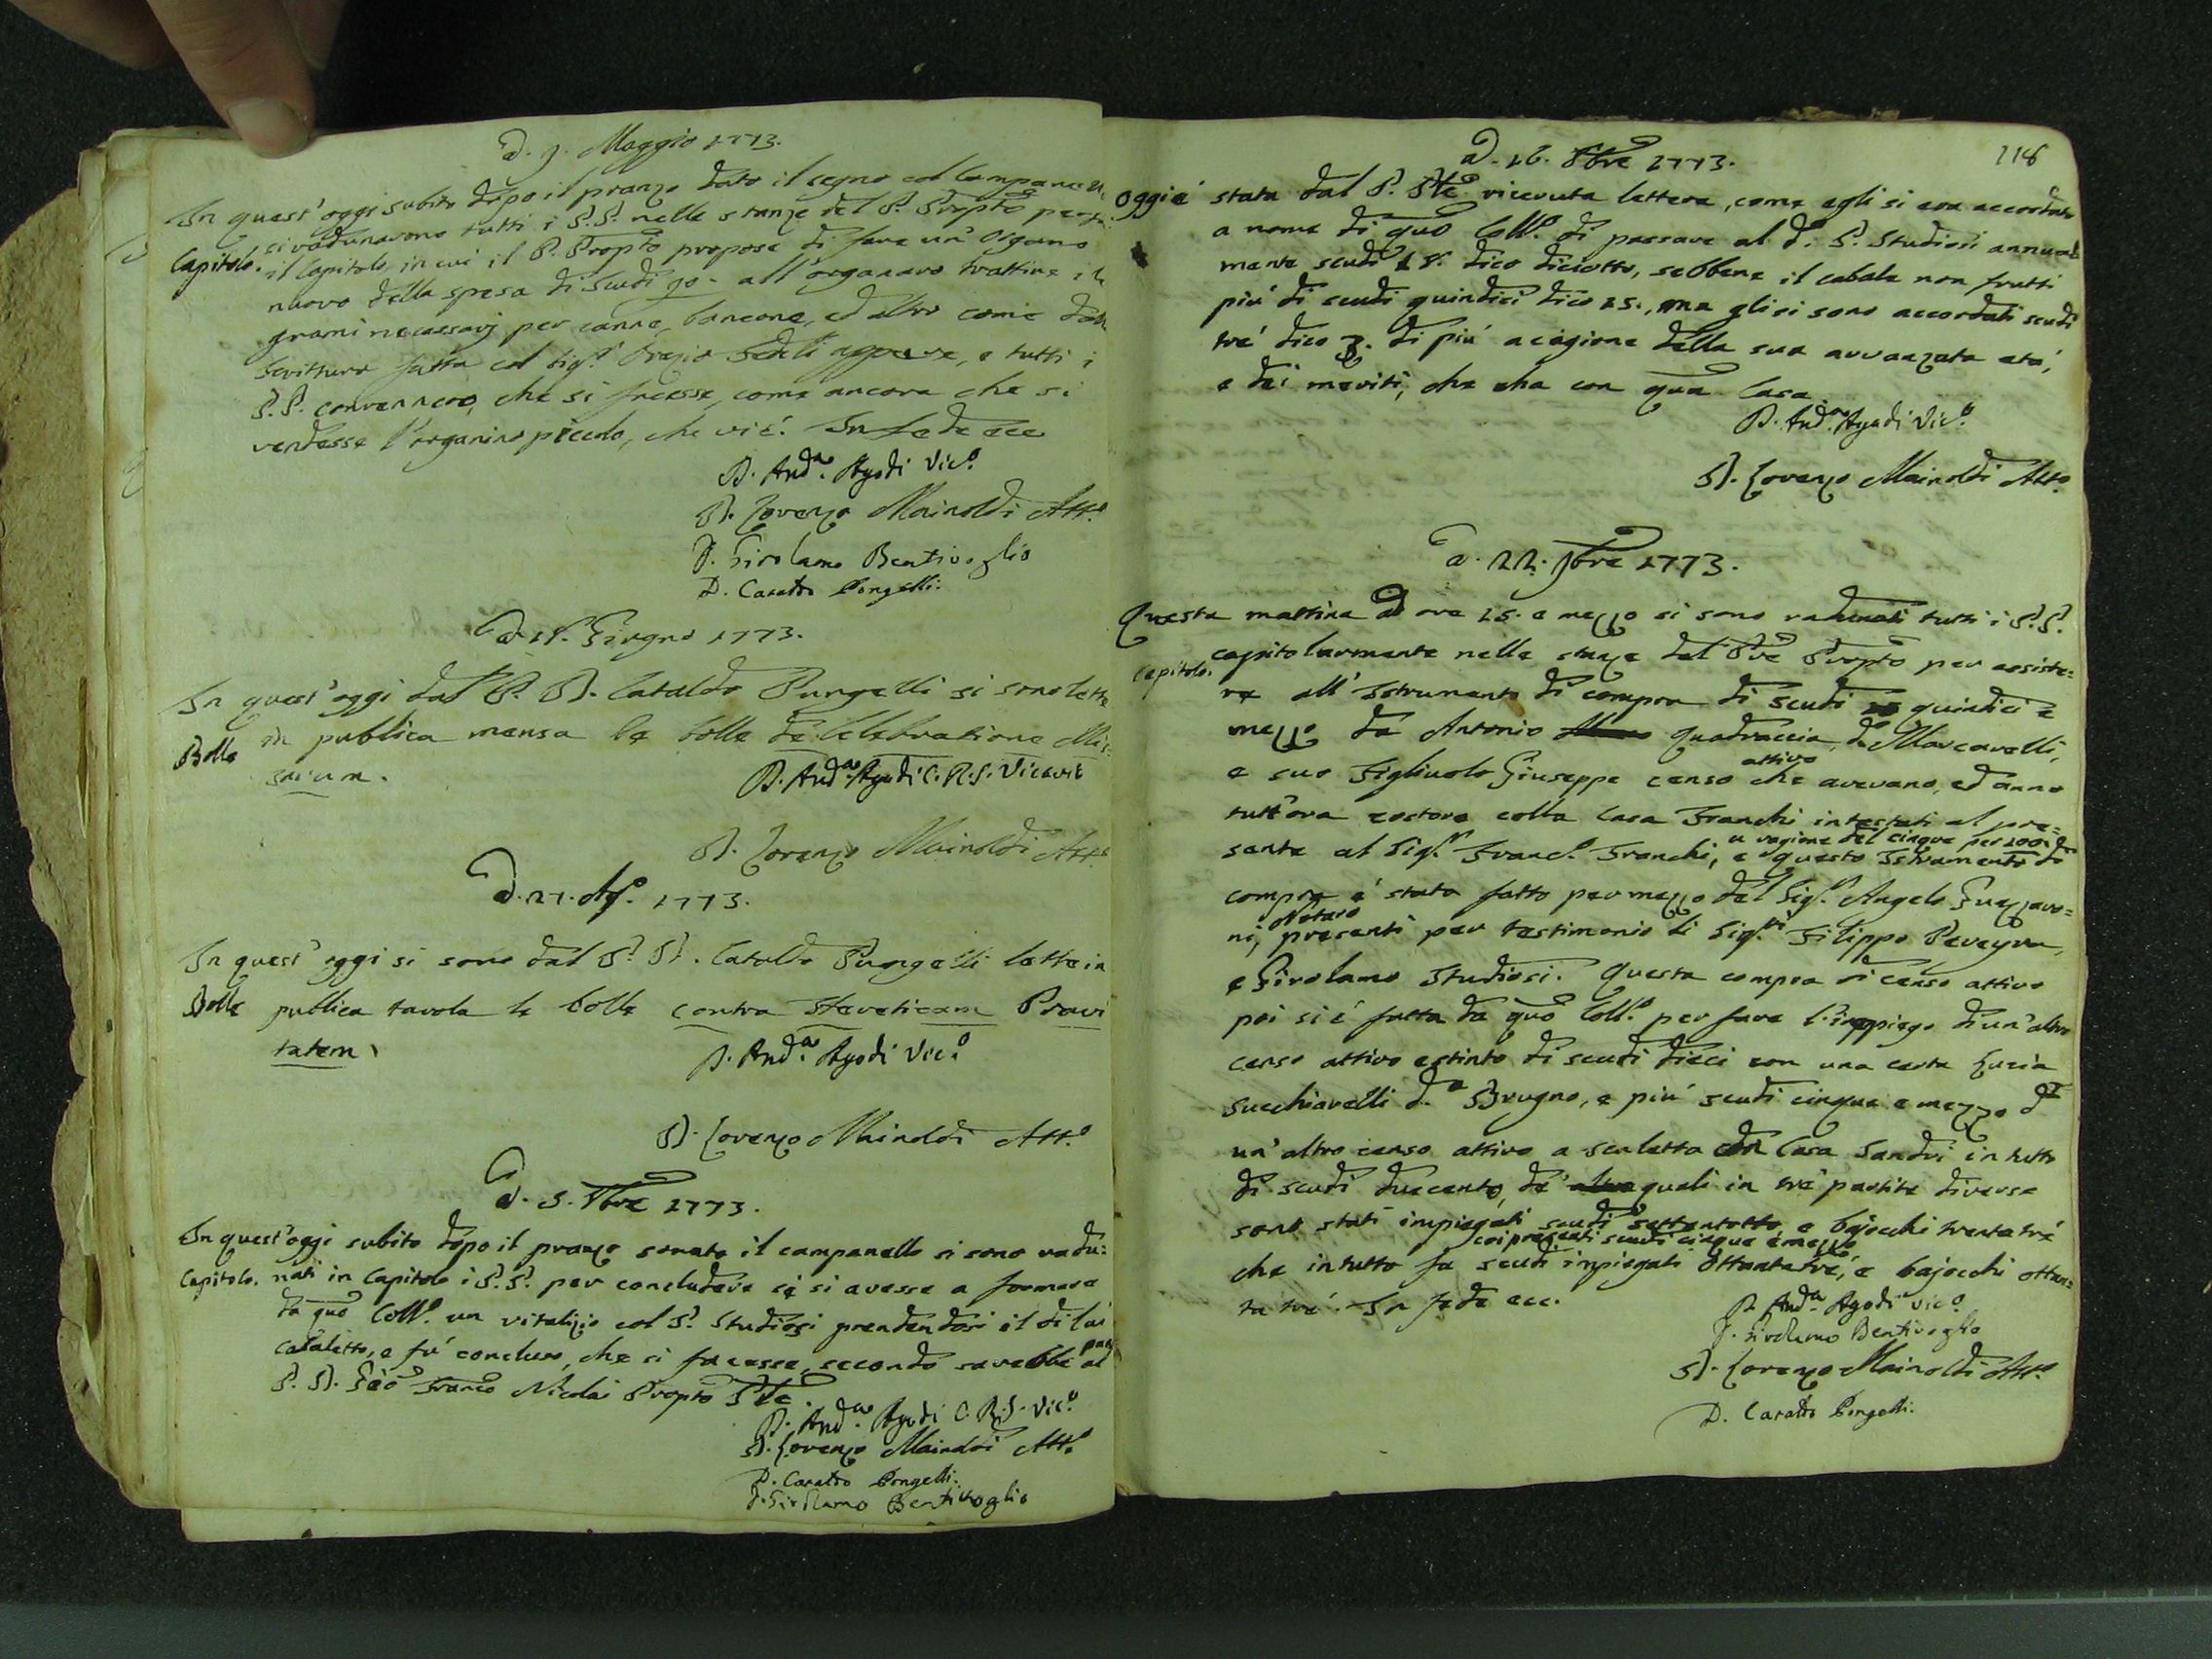 A. 9. Maggio 1773.
In quest'oggi subito dopo il pranzo dato il segno col campanello
si radunarono tutti i P.P. nelle stanze del P. Propto per
Capitolo. il Capitolo, in cui il P. Propto propose di fare un' Organo
nuovo della spesa di scudi 90 - all'organaro trattine i le
gnami necessarj per canne, bancone, ed altro come dalla
Scrittura fatta col Sig.r Orazio Fedeli appare, e tutti i
P.P. convennero, che si facesse, come ancora che si
vendesse l'organino piccolo, che vi è. In fede ecc
D. And.a Agodi Vic.o
D. Lorenzo Mainoldi Att.o
D. Girolamo Bentivoglio
D. Cataldo Pongelli.
A. 18. Giugno 1773.
In quest'oggi dal P. D. Cataldo Pungelli si sono lette
Bolle in publica mensa le bolle de Celebratione Mis
sarum.
D. And.a Agodi C. R. S. Vicario
D. Lorenzo Mainoldi Att.o
A. 27. Ag.o 1773.
In quest'oggi si sono dal P. D. Cataldo Pungelli lette in
Bolle publica tavola le bolle contra Hereticam Pravi
tatem.
D. And.a Agodi Vic.o
D. Lorenzo Mainoldi Att.o
A. 5. 8bre 1773.
In quest'oggi subito dopo il pranzo sonato il campanello si sono radu=
Capitolo. nati in Capitolo i P.P. per concludere se si avesse a formare
da quo Coll.o un vitalizio col P. Studiosi prendendosi il di lui
cabaletto, e fu concluso, che si facesse, secondo sarebbe par al
P. D. Gio Franco Nicolai Propto Pte.
D. And.a Agodi C. R. S. Vic.o
D. Lorenzo Mainoldi Att.o
D. Cataldo Pongelli.
D. Girolamo Bentivoglio
118
A. 16. 8bre 1773.
Oggi è stata dal P. Pte ricevuta lettera, come egli si era accordato
a nome di quo Coll.o di passare al d.o P. Studiosi annual
mente scudi 18. dico diciotto, sebbene il cabale non frutti
più di scudi quindici dico 15., ma gli si sono accordati scudi
trè dico 3. di più a cagione della sua avvanzata età,
e dei meriti, che eha con qua Casa.
D. And.a Agodi Vic.o
D. Lorenzo Mainoldi Att.o
A. 22. 9bre 1773.
Questa mattina ad ore 15. e mezzo si sono radunati tutti i P.P.
Capitolo. capitolarmente nelle stanze del Pre Propto per assiste=
re all' Istrumento di compra di scudi quindici e
mezzo da Antonio Quadraccia da Marcavelli,
attivo
e suo Figliuolo Giuseppe censo che avevano, ed anno
tutt'ora costoro colla Casa Franchi intestati al pre=
a ragione del cinque per 100.
sente al Sig.r Franc.o Franchi, e questo Istrumento di
compra è stato fatto per mezzo del Sig.r Angelo Guezzaro=
Notaro
ni, presenti per testimonio li Sig.ri Filippo Pereyra,
e Girolamo Studiosi. Questa compra di censo attivo
poi si è fatta da quo Coll.o per fare l'impiego di un'altro
censo attivo estinto di scudi dieci con una certa Lucia
Succhiarelli d.a Brugno, e più scudi cinque e mezzo di
un'altro censo attivo a scaletta con Casa Sandri in tutto
di scudi duecento, de' quali in trè partite diverse
sono stati impiegati scudi settantotto, e bajocchi trentatrè
coi presenti scudi cinque e mezzo
che in tutto fa scudi impiegati ottantatrè, e bajocchi ottan=
ta trè. In fede ecc.
D. And.a Agodi Vic.o
D. Girolamo Bentivoglio
D. Lorenzo Mainoldi Att.o
D. Cataldo Pongelli.